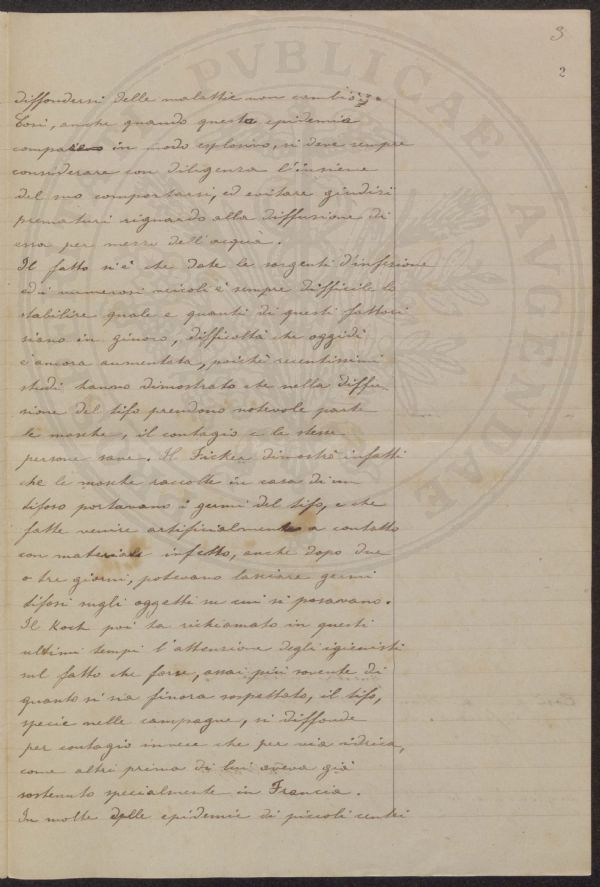 3
2
diffondersi delle malattie non cambiò.
Così, anche quando questa epidemia
compare in modo esplosivo, si deve sempre
considerare con diligenza l'insieme
del suo comportarsi, ed evitare giudizi
prematuri riguardo alla diffusione di
essa per mezzo dell'acqua.
Il fatto si è che date le sorgenti d'infezione
ed i numerosi veicoli è sempre difficile lo
stabilire quale e quanti di questi fattori
siano in giuoco, difficoltà che oggidì
è ancora aumentata, poichè recentissimi
studi hanno dimostrato che nella diffu-
sione del tifo prendono notevole parte
le mosche, il contagio e le stesse
persone sane. Il Ficker dimostrò infatti
che le mosche raccolte in casa di un
tifoso portavano i germi del tifo, e che
fatte venire artificialmente a contatto
con materiale infetto, anche dopo due
o tre giorni, potevano lasciare germi
tifosi sugli oggetti su cui si posavano.
Il Koch poi ha richiamato in questi
ultimi tempi l'attenzione degli igienisti
sul fatto che forse, assai più sovente di
quanto si sia finora sospettato, il tifo,
specie nelle campagne, si diffonde
per contagio invece che per via idrica,
come altri prima di lui aveva già
sostenuto specialmente in Francia.
In molte delle epidemie di piccoli centri
PVBLICAE AVGENDAE